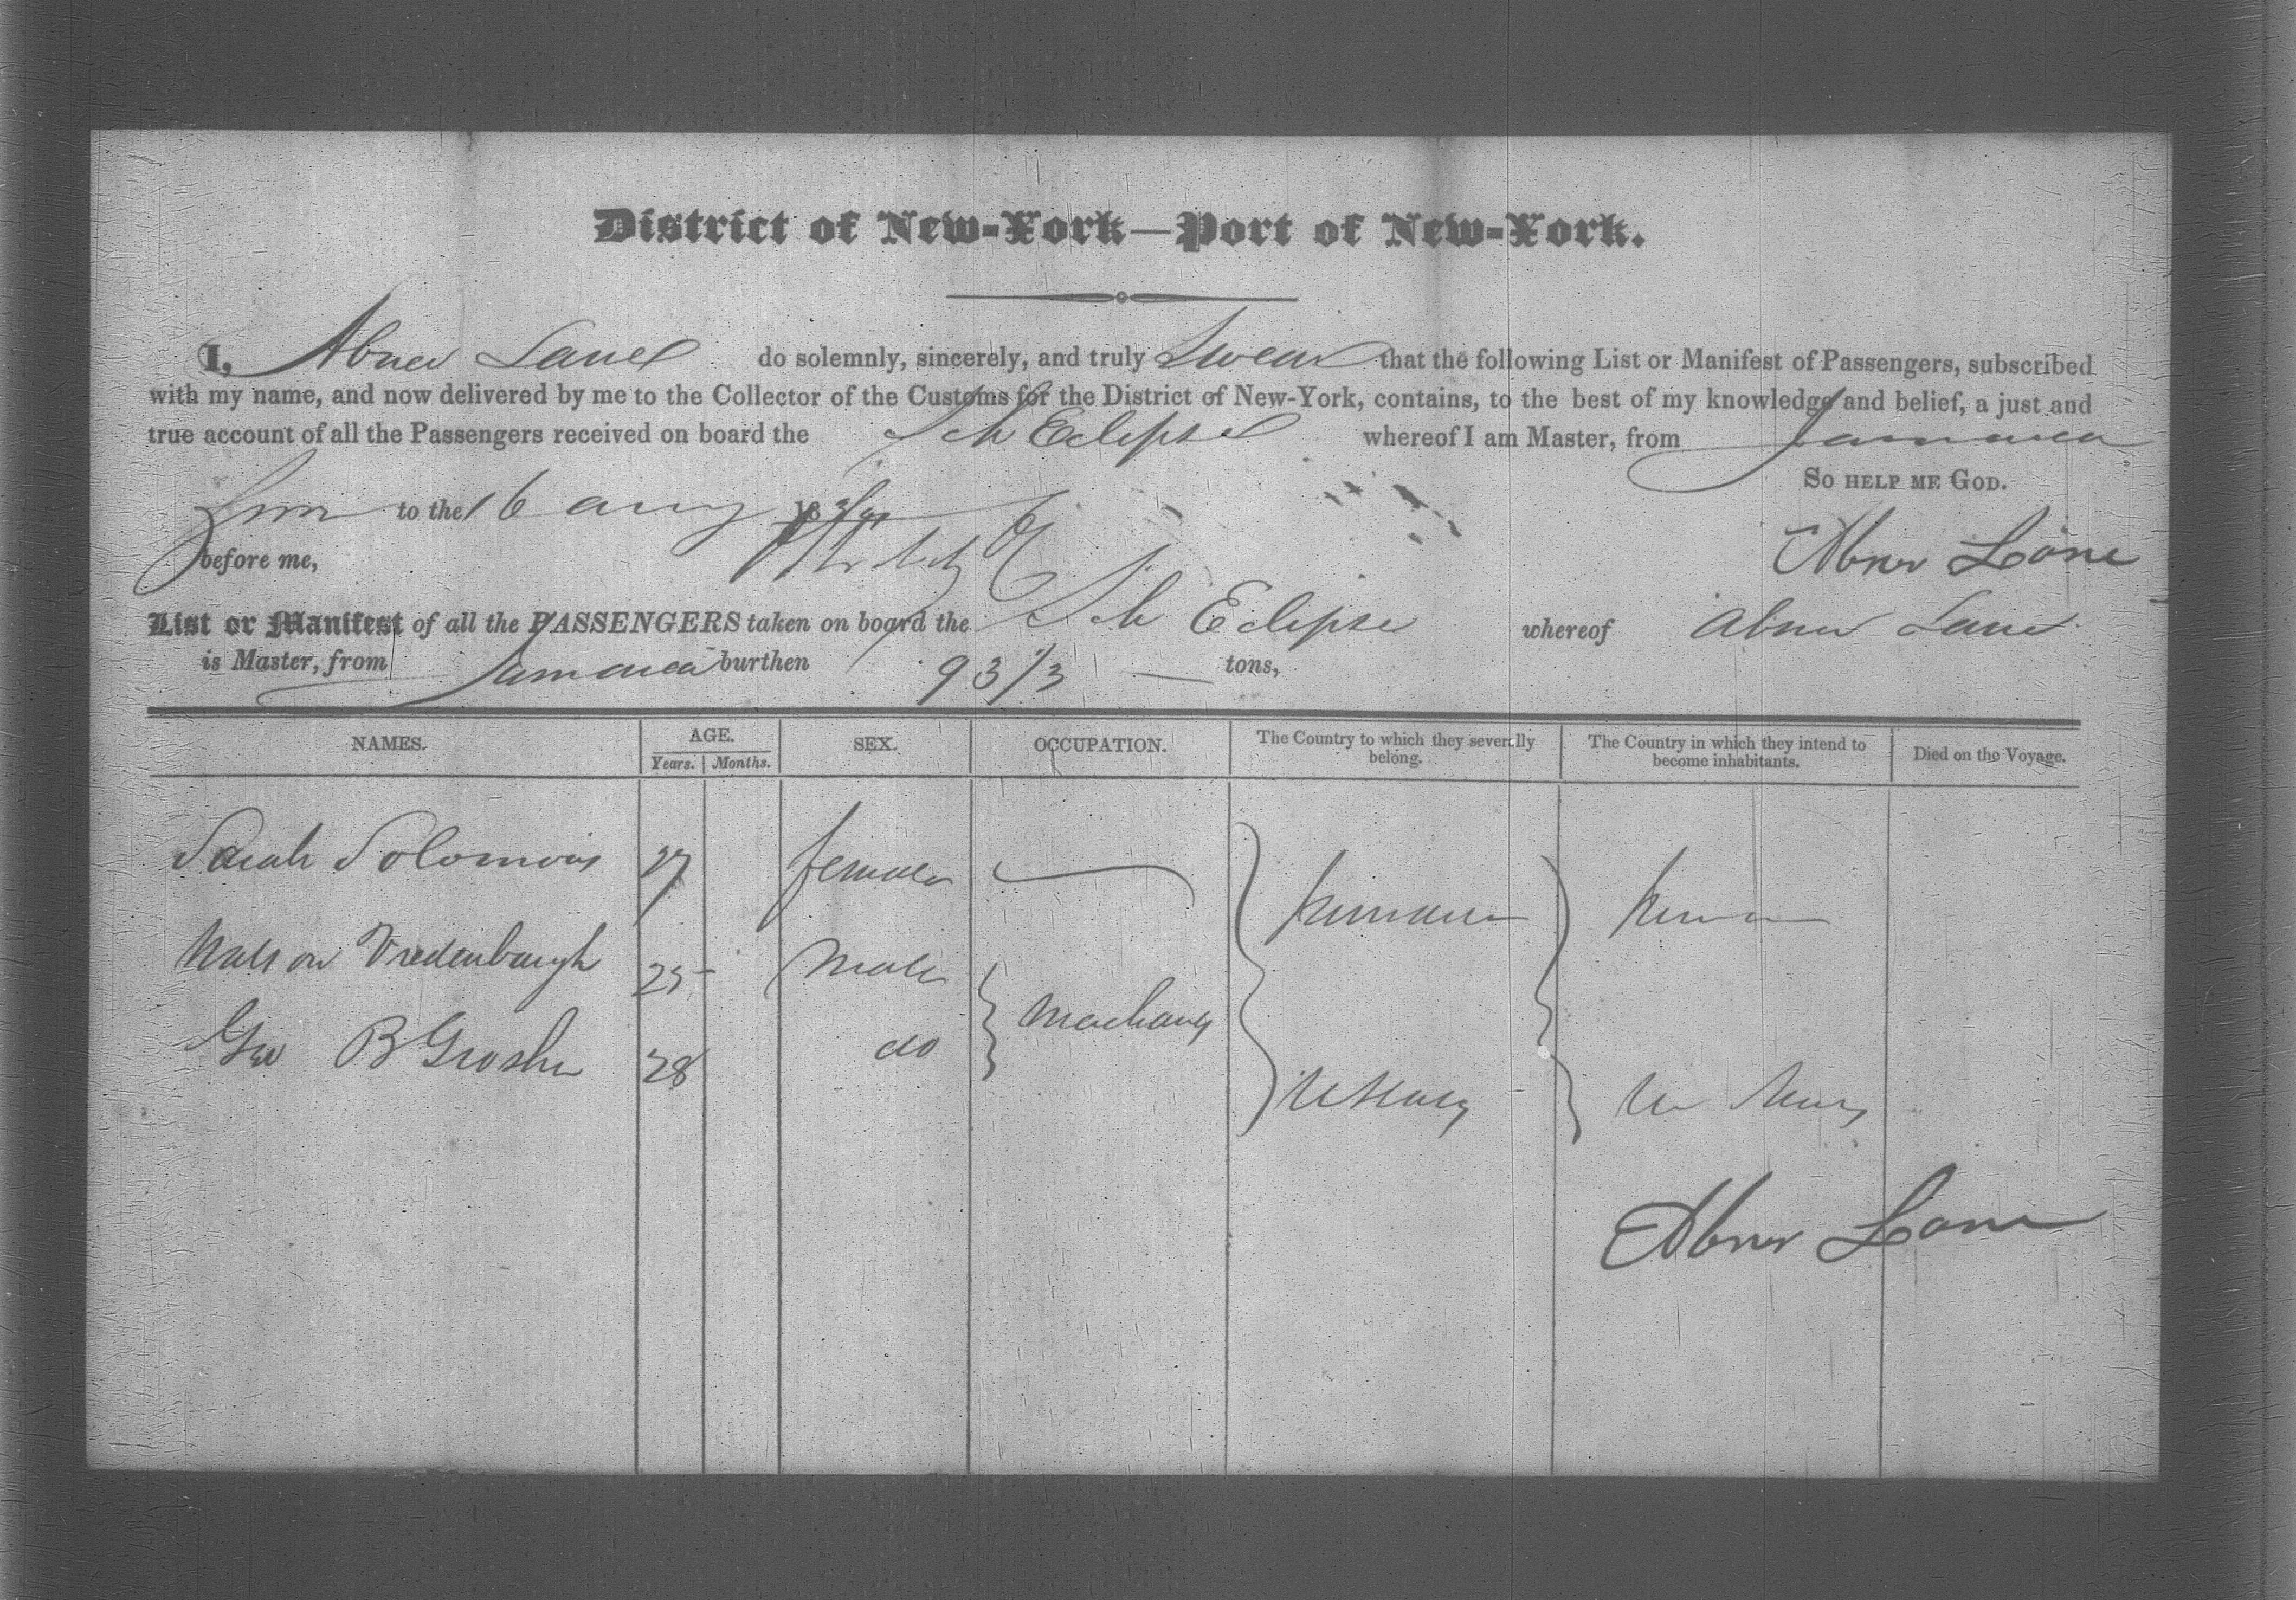 District of New-York—Port of New-York.
I, Abner Lane do solemnly, sincerely, and truly Swear that the following List or Manifest of Passengers, subscribed
with my name, and now delivered by me to the Collector of the Customs for the District of New-York, contains, to the best of my knowledge and belief, a just and
true account of all the Passengers received on board the Sch Eclipse whereof I am Master, from Jamaica
So HELP ME GOD.
to the 16 aug 18
before me,
Abner Lane
List or Manifest of all the PASSENGERS taken on board the Sch Eclipse whereof Abner Lane
is Master, from Jamaica burthen 93/3 tons,
NAMES. AGE. SEX. OCCUPATION. The Country to which they severally belong. The Country in which they intend to become inhabitants. Died on the Voyage.
Years. Months.
Sarah Solomons 27 female
Vredenburgh 25 Male
Geo B Grosher 28 do
Abner Lane